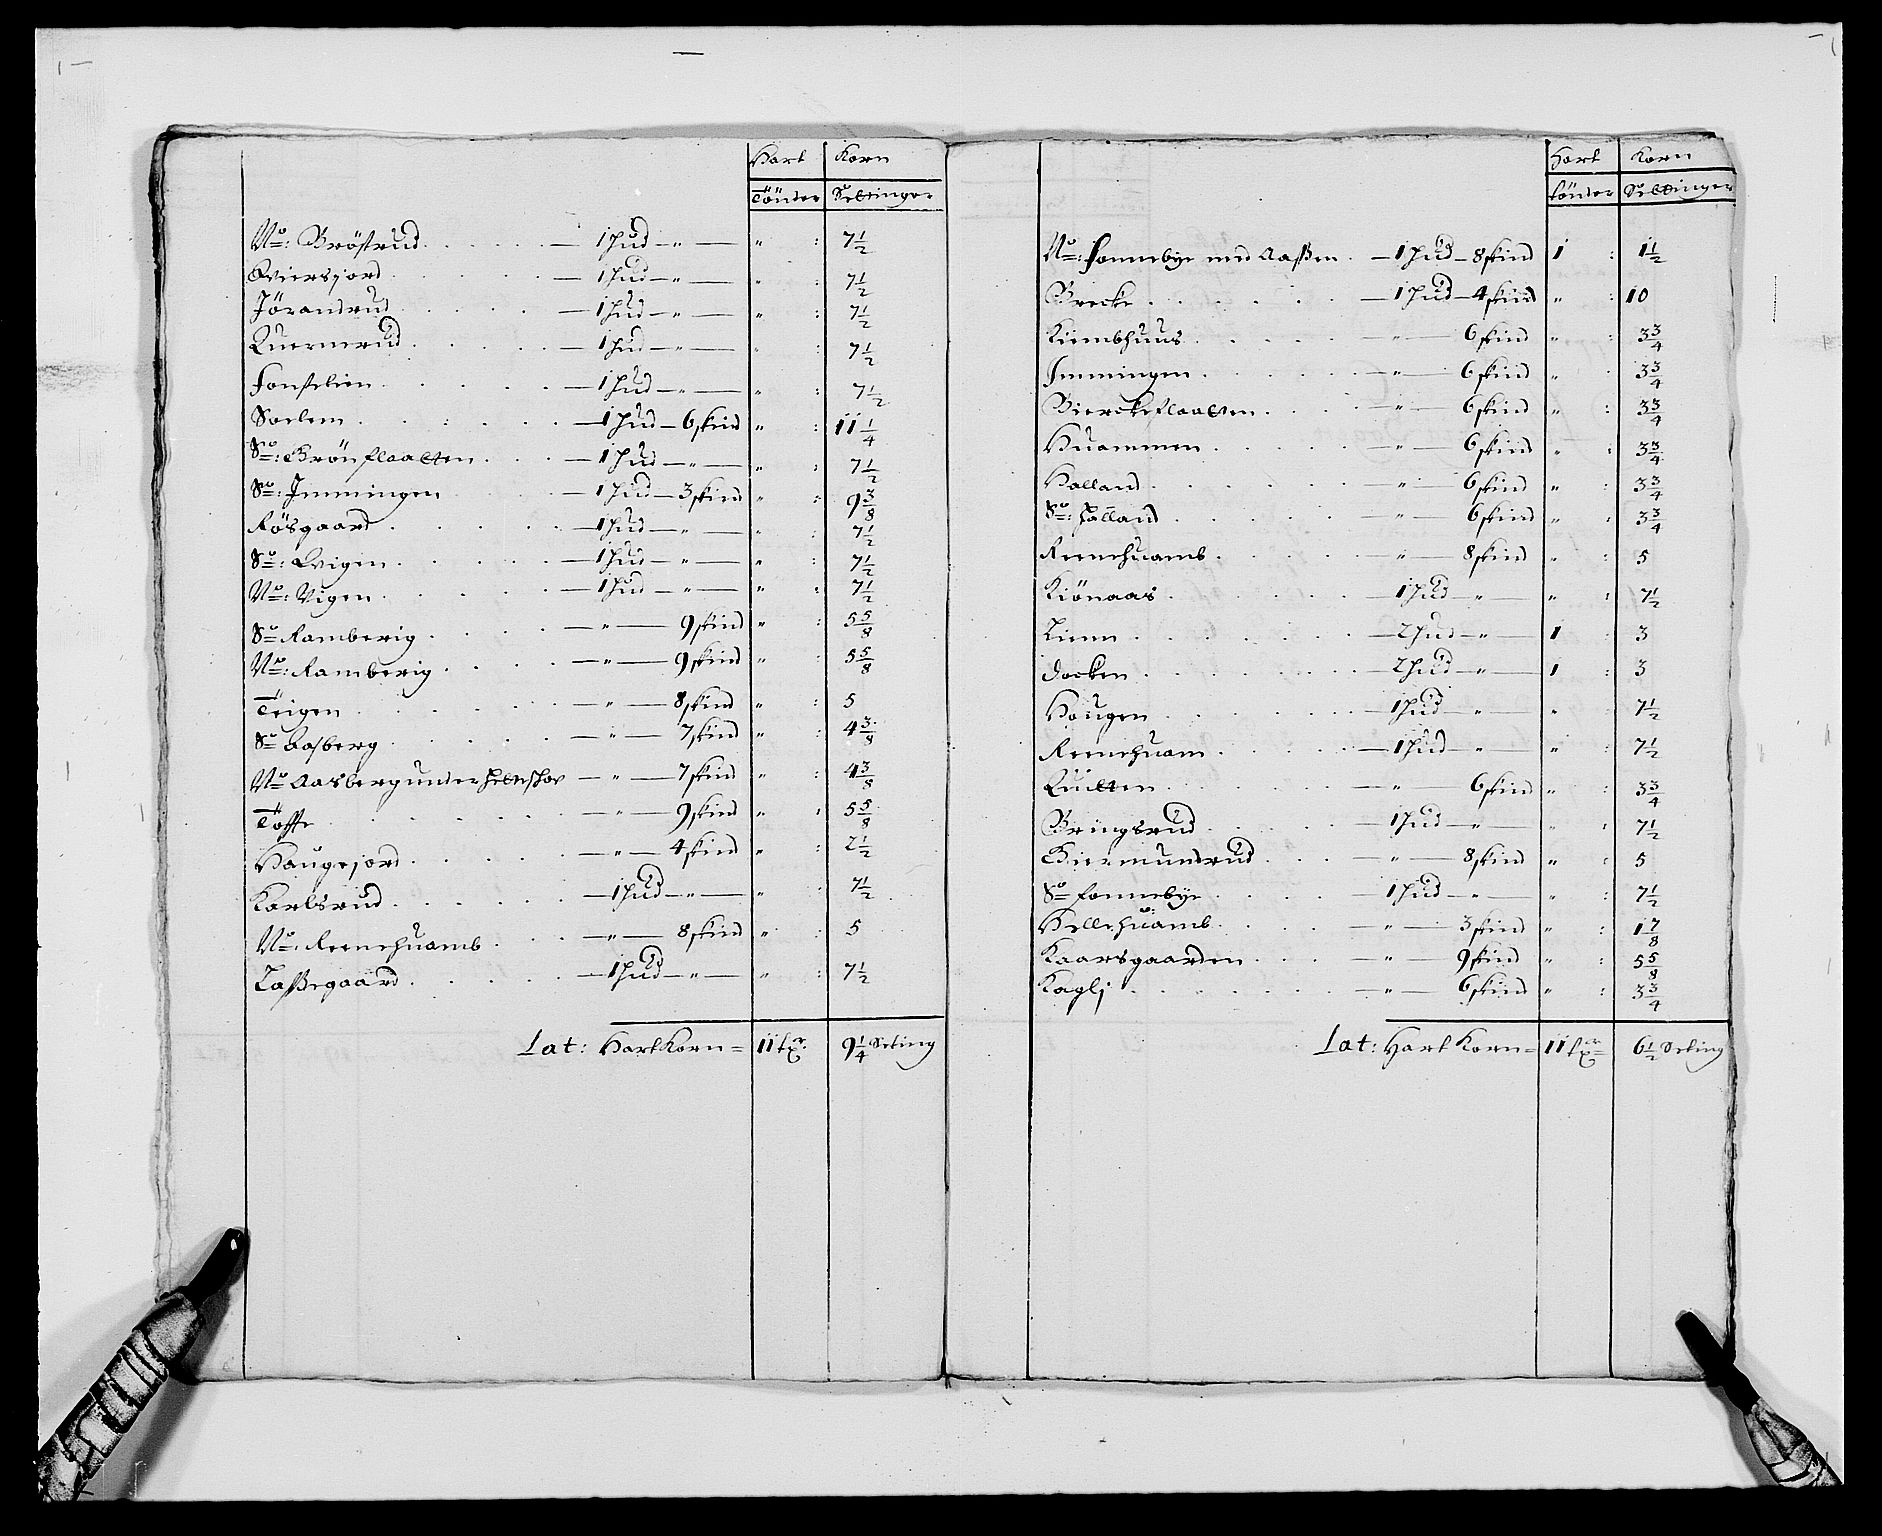 Hart Korn
Tönder Settinger
No: Bröstrud 1 hud " " : 7 1/2
Qviersjord 1 hud " " : 7 1/2
Jörandrud 1 hud " " : 7 1/2
Quernerud 1 hud " " : 7 1/2
Fonstelien 1 hud " " : 7 1/2
Soelem 1 hud 6 skind " : 11 1/4
So: Grönflaatten 1 hud " " : 7 1/2
So: Jmmingen 1 hud 3 skind " : 9 3/8
Rösgaard 1 hud " " : 7 1/2
So: Qvigen 1 hud " " : 7 1/2
No: Vigen 1 hud " " : 7 1/2
So Ramberig " 9 skind " : 5 5/8
No: Ramberig " 9 skind " : 5 5/8
Teigen " 8 skind " : 5
So Aasberg " 7 skind " : 4 3/8
No Aasberg under " 7 skind " : 4 3/8
Toffte " 9 skind " : 5 5/8
Haugejord " 4 skind " : 2 1/2
Karlsrud 1 hud " " : 7 1/2
No: Reenehuamb " 8 skind " : 5
Laßegaard 1 hud " " : 7 1/2
Lat: Hart Korn = 11 9 1/4 Seting
Hart Korn
tönder Settinger
No: Fonnebye med Aaßen 1 hud 8 skind 1 : 1 1/2
Brecke 1 hud 4 skind " : 10
Kirmbhuus " 6 skind " 3 3/4
Jmmingen " 6 skind " 3 3/4
Bierckeflaatten " 6 skind " : 3 3/4
Huammen " 6 skind " : 3 3/4
Halland " 6 skind " : 3 3/4
So: Halland " 6 skind " : 3 3/4
Reenehuamb " 8 skind " : 5
Kiönaas 1 hud " " : 7 1/2
Liem 2 hud " 1 : 3
Docken 2 hud " 1 : 3
Haugen 1 hud " " : 7 1/2
Reenehuam 1 hud " " : 7 1/2
Quitten " 6 skind " : 3 3/4
Bringsrud 1 hud " " : 7 1/2
Giermundrud " 8 skind " : 5
So Fonnebye 1 hud " " : 7 1/2
Hellehuamb " 3 skind " : 1 7/8
Kaarsgaarden " 9 skind " : 5 5/8
Haglj " 6 skind " : 3 3/4
Lat: Hart Korn = 11 6 1/2 Seting